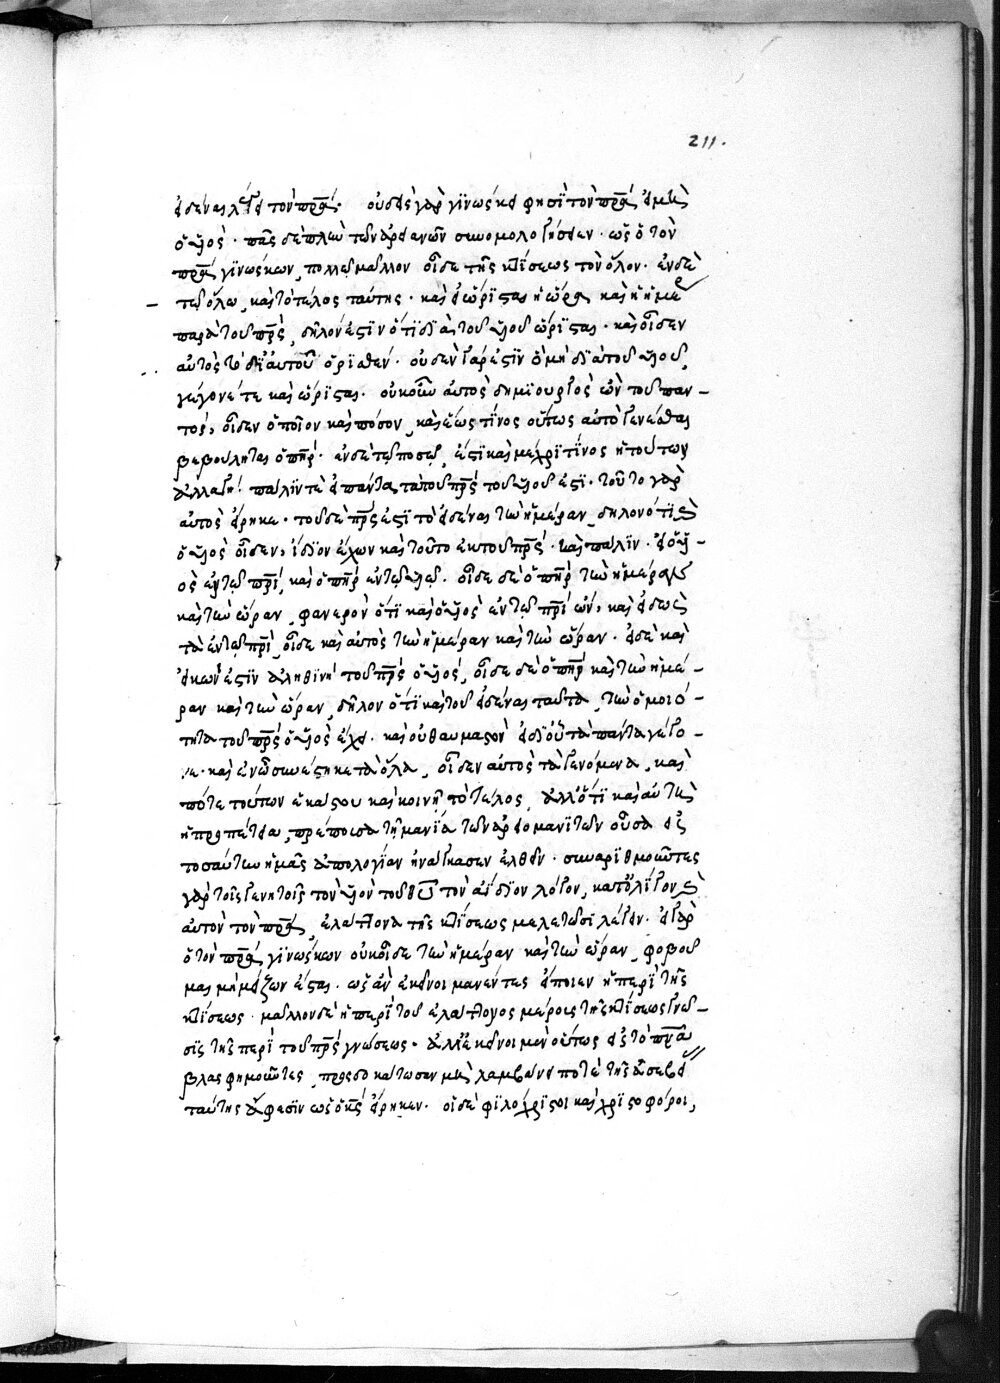 211.
εἰδέναι λέγει τὸν πρα. οὐδεὶς γὰρ γινώσκει φησὶ τὸν πρα εἰ μὴ
ὁ υἱός. πᾶς δὲ πλὴν τῶν ἀρειανῶν συνομολογήσειεν. ὡς ὁ τὸν
πρα γινώσκων, πολλῷ μᾶλλον οἶδε τῆς κτίσεως τὸν ὅλον. ἐν δὲ
τῷ ὅλω, καὶ τὸ τέλος ταύτης. καὶ εἰ ὥρισται ἡ ὥρα καὶ ἡ ἡμέρα
παρὰ τοῦ πρς, δῆλόν ἐστιν ὅτι διὰ τοῦ υἱοῦ ὥρισται. καὶ οἶδεν
αὐτὸς τὸ δι' αὐτοῦ ὁρισθέν. οὐδὲν γάρ ἐστιν ὃ μὴ διὰ τοῦ υἱοῦ
γέγονέ τε καὶ ὥρισται. οὐκοῦν αὐτὸς δημιουργὸς ὢν τοῦ παν-
τός, οἶδεν ὁποῖον καὶ πόσον, καὶ ἕως τίνος οὕτως αὐτὸ γενέσθαι
βεβούληται ὁ πηρ. ἐν δὲ τῷ πόσῳ, ἐστὶ καὶ μέχρι τίνος ἡ τούτων
ἀλλαγή! πάλιν τὲ εἰ πάντα τὰ τοῦ πρς τοῦ υἱοῦ ἐστι. τοῦτο γὰρ
αὐτὸς εἴρηκε. τοῦ δὲ πρς ἐστὶ τὸ εἰδέναι τὴν ἡμέραν, δηλονότι καὶ
ὁ υἱὸς οἶδεν, ἴδιον ἔχων καὶ τοῦτο ἐκ τοῦ πρς. καὶ πάλιν. εἰ ὁ υἱ-
ὸς ἐν τῷ πρι, καὶ ὁ πηρ ἐν τῷ υἱῷ. οἶδε δὲ ὁ πηρ τὴν ἡμέραν
καὶ τὴν ὥραν, φανερὸν ὅτι καὶ ὁ υἱὸς ἐν τῷ πρι ὤν, καὶ εἰδὼς
τὰ ἐν τῷ πρι, οἶδε καὶ αὐτὸς τὴν ἡμέραν καὶ τὴν ὥραν. εἰ δὲ καὶ
εἰκών ἐστιν ἀληθινὴ τοῦ πρς ὁ υἱός, οἶδε δὲ ὁ πηρ καὶ τὴν ἡμέ-
ραν καὶ τὴν ὥραν, δῆλον ὅτι καὶ τοῦ εἰδέναι ταῦτα, τὴν ὁμοιό-
τητα τοῦ πρς ὁ υἱὸς ἔχει. καὶ οὐ θαυμαστὸν εἰ δι' οὗ τὰ πάντα γέγο-
νε. καὶ ἐν ὧ συνέστηκε τὰ ὅλα, οἶδεν αὐτὸς τὰ γενόμενα, καὶ
πότε τούτων ἑκάστου καὶ κοινῇ τὸ τέλος, ἀλλ' ὅτι καὶ αὕτη
ἡ προπέτεια, πρέπουσα τῇ μανία τῶν ἀρειομανιτῶν οὖσα εἰς
τοσαύτην ἡμᾶς ἀπολογίαν ἠνάγκασεν ἐλθεῖν. συναριθμοῦντες
γὰρ τοῖς γενητοῖς τὸν υἱὸν τοῦ θυ τὸν ἀΐδιον λόγον, κατ' ὀλίγον καὶ
αὐτὸν τὸν πρα, ἐλάττονα τῆς κτίσεως μελετῶσι λέγειν. εἰ γὰρ
ὁ τὸν πρα γινώσκων οὐκ οἶδε τὴν ἡμέραν καὶ τὴν ὥραν, φοβοῦ
μαι μὴ μείζων ἔσται. ὡς ἂν ἐκεῖνοι μανέντες εἴποιεν ἡ περὶ τῆς
κτίσεως. μᾶλλον δὲ ἡ περὶ τοῦ ἐλάττονος μέρους τῆς κτίσεως γνῶ-
σις τῆς περὶ τοῦ πρς γνώσεως. ἀλλ' ἐκεῖνοι μὲν οὕτως εἰς τὸ πνα
βλασφημοῦντες, προσδοκάτωσαν μὴ λαμβάνειν ποτὲ τῆς ἀσεβείας
ταύτης ἄφεσιν ὡς ὁ κς εἴρηκεν. οἱ δὲ φιλόχριστοι καὶ χριστοφόροι,